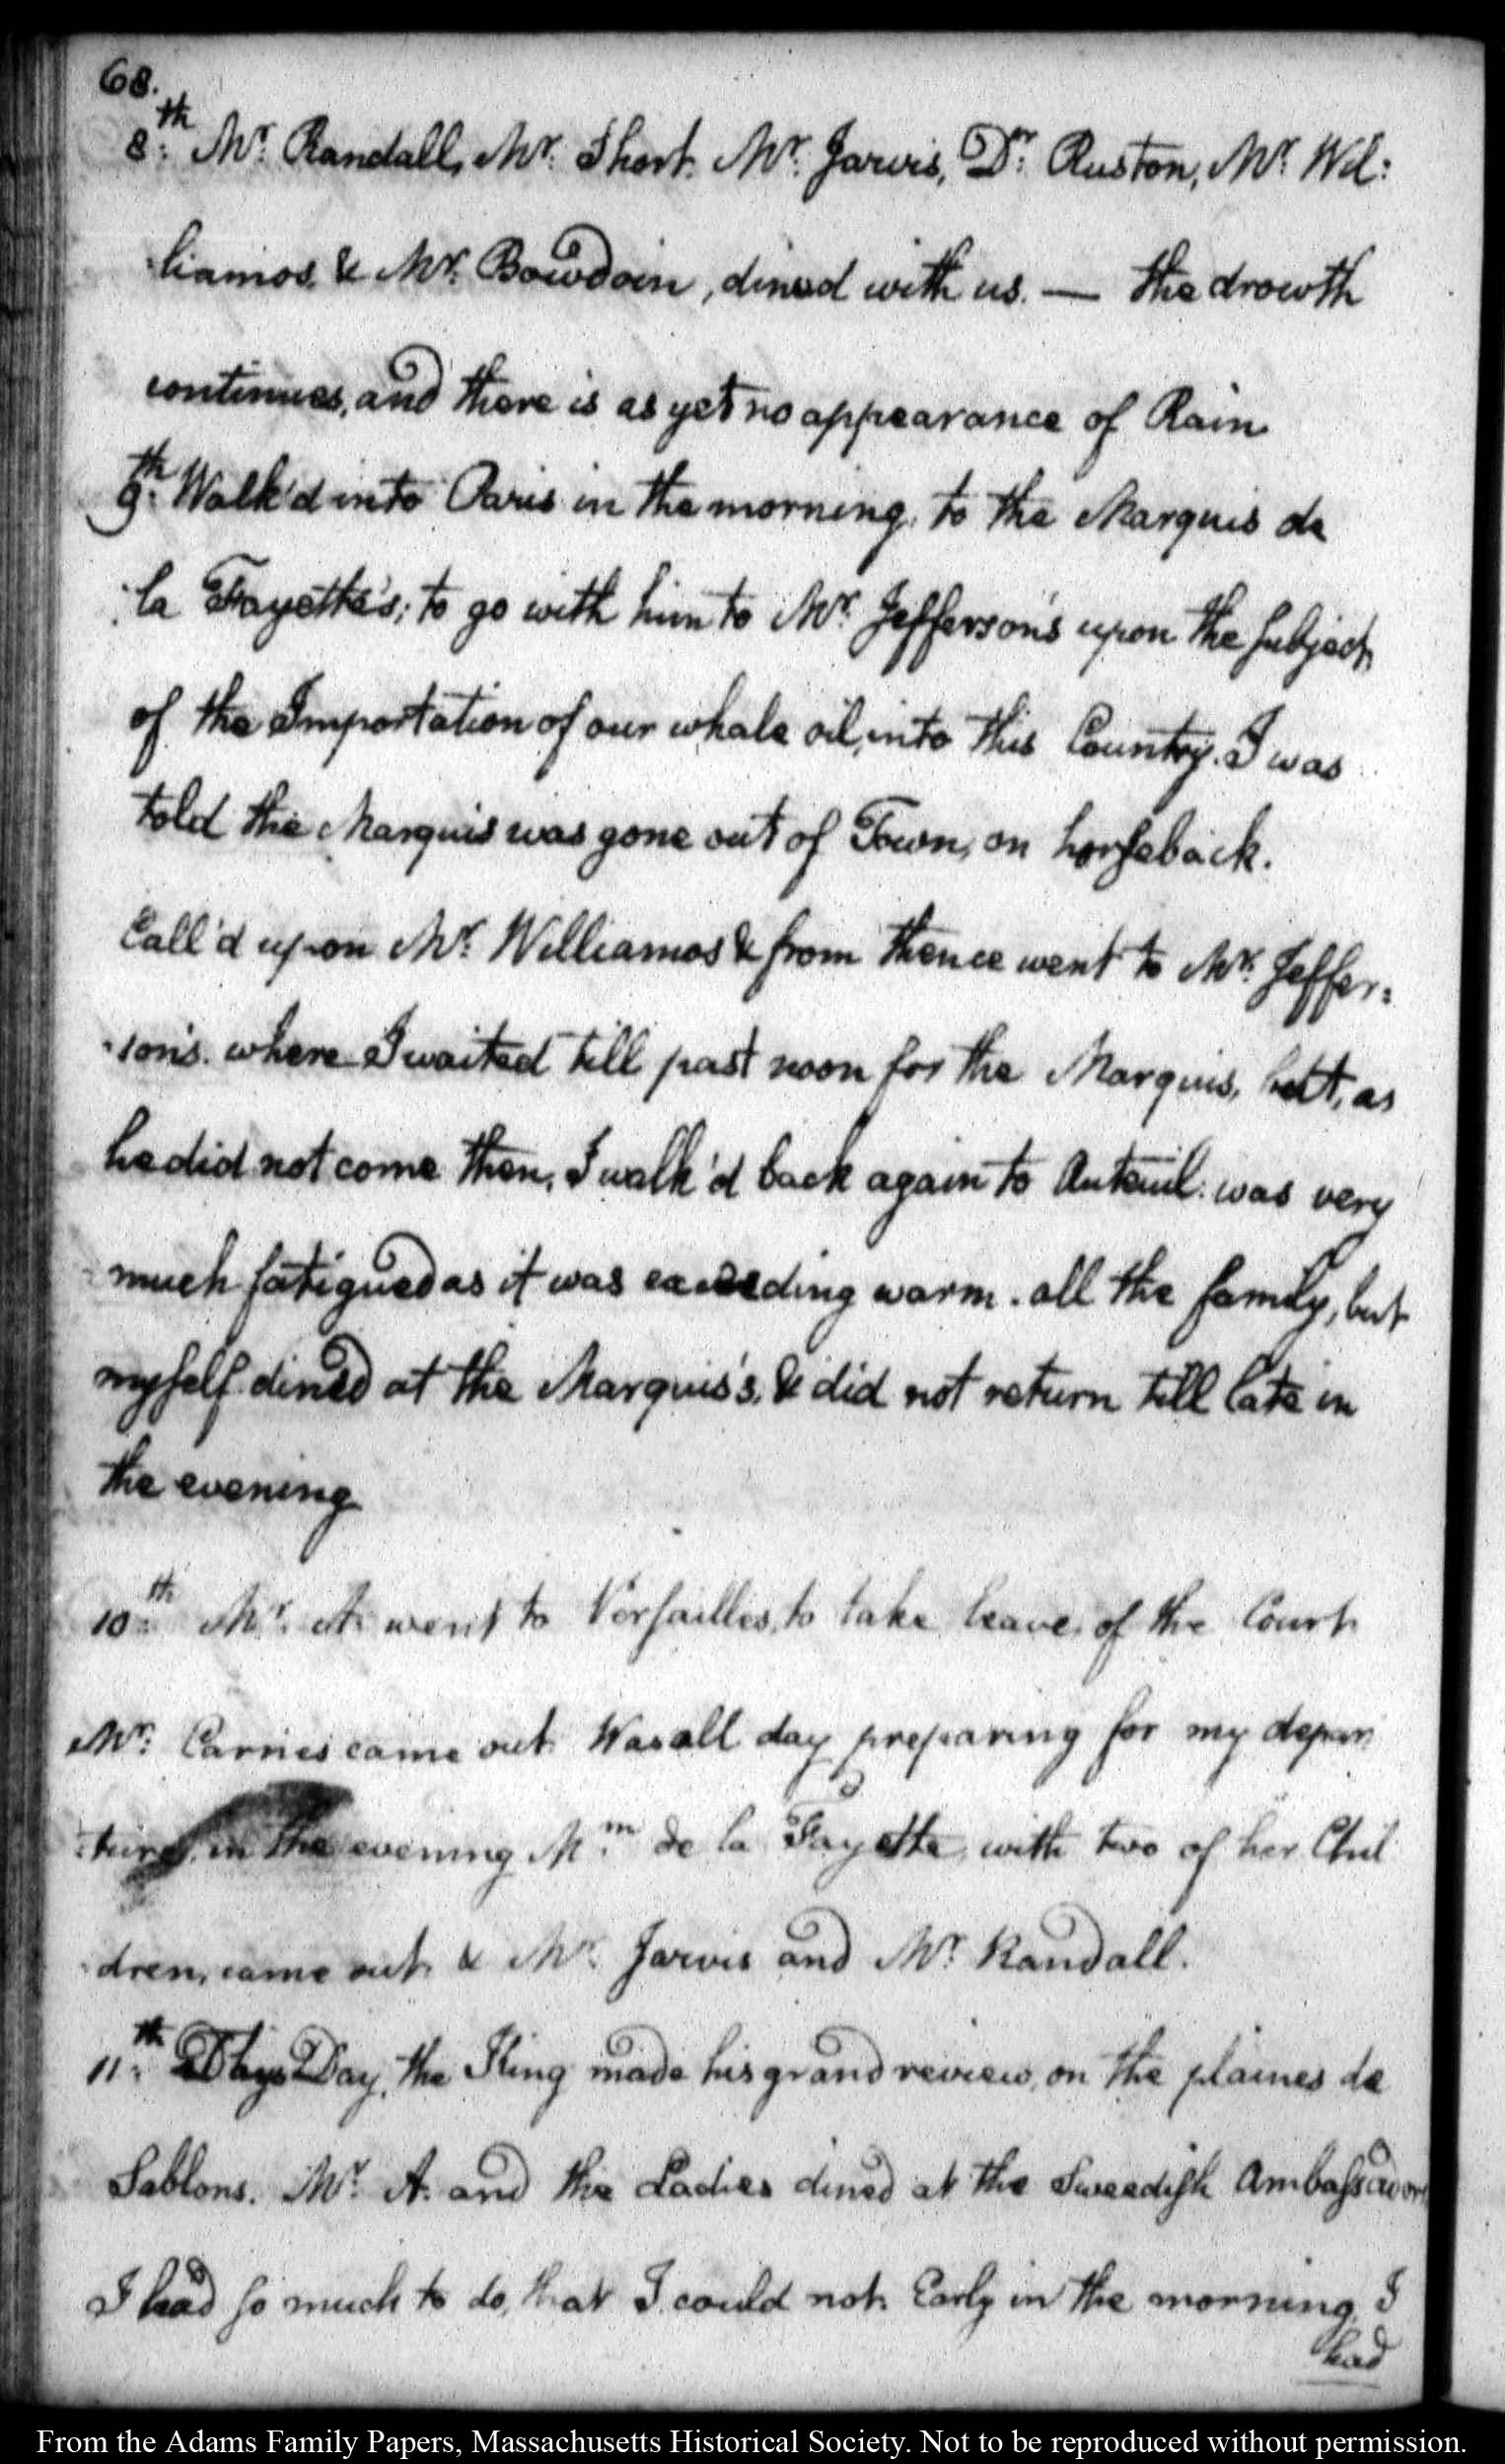 68.
8:th Mr. Randall, Mr. Short. Mr. Jarvis, Dr. Ruston, Mr. Wil:
:liamos, & Mr. Bowdoin, dined with us. — the drowth
continues, and there is as yet no appearance of Rain
9:th Walk'd into Paris in the morning, to the Marquis de
:la Fayette's; to go with him to Mr. Jefferson's upon the subject
of the Importation of our whale oil, into this Country. I was
told the Marquis was gone out of Town, on horseback.
Call'd upon Mr. Williamos & from thence went to Mr. Jeffer:
:son's. where I waited till past noon for the Marquis, but, as
he did not come then, I walk'd back again to Auteuil. was very
much fatigued as it was exceeding warm. all the family, but
myself dined at the Marquis's, & did not return till late in
the evening
10:th Mr. A. went to Versailles, to take leave of the Court
Mr. Carnes came out. Was all day preparing for my depar
:ture, in the evening Mm. de la Fayette, with two of her Chil
:dren, came out & Mr. Jarvis and Mr. Randall.
11:th This Day, the King made his grand review, on the plaines de
Sablons. Mr. A. and the Ladies dined at the Sweedish Ambassadors
I had so much to do, that I could not. Early in the morning, I
had
From the Adams Family Papers, Massachusetts Historical Society. Not to be reproduced without permission.